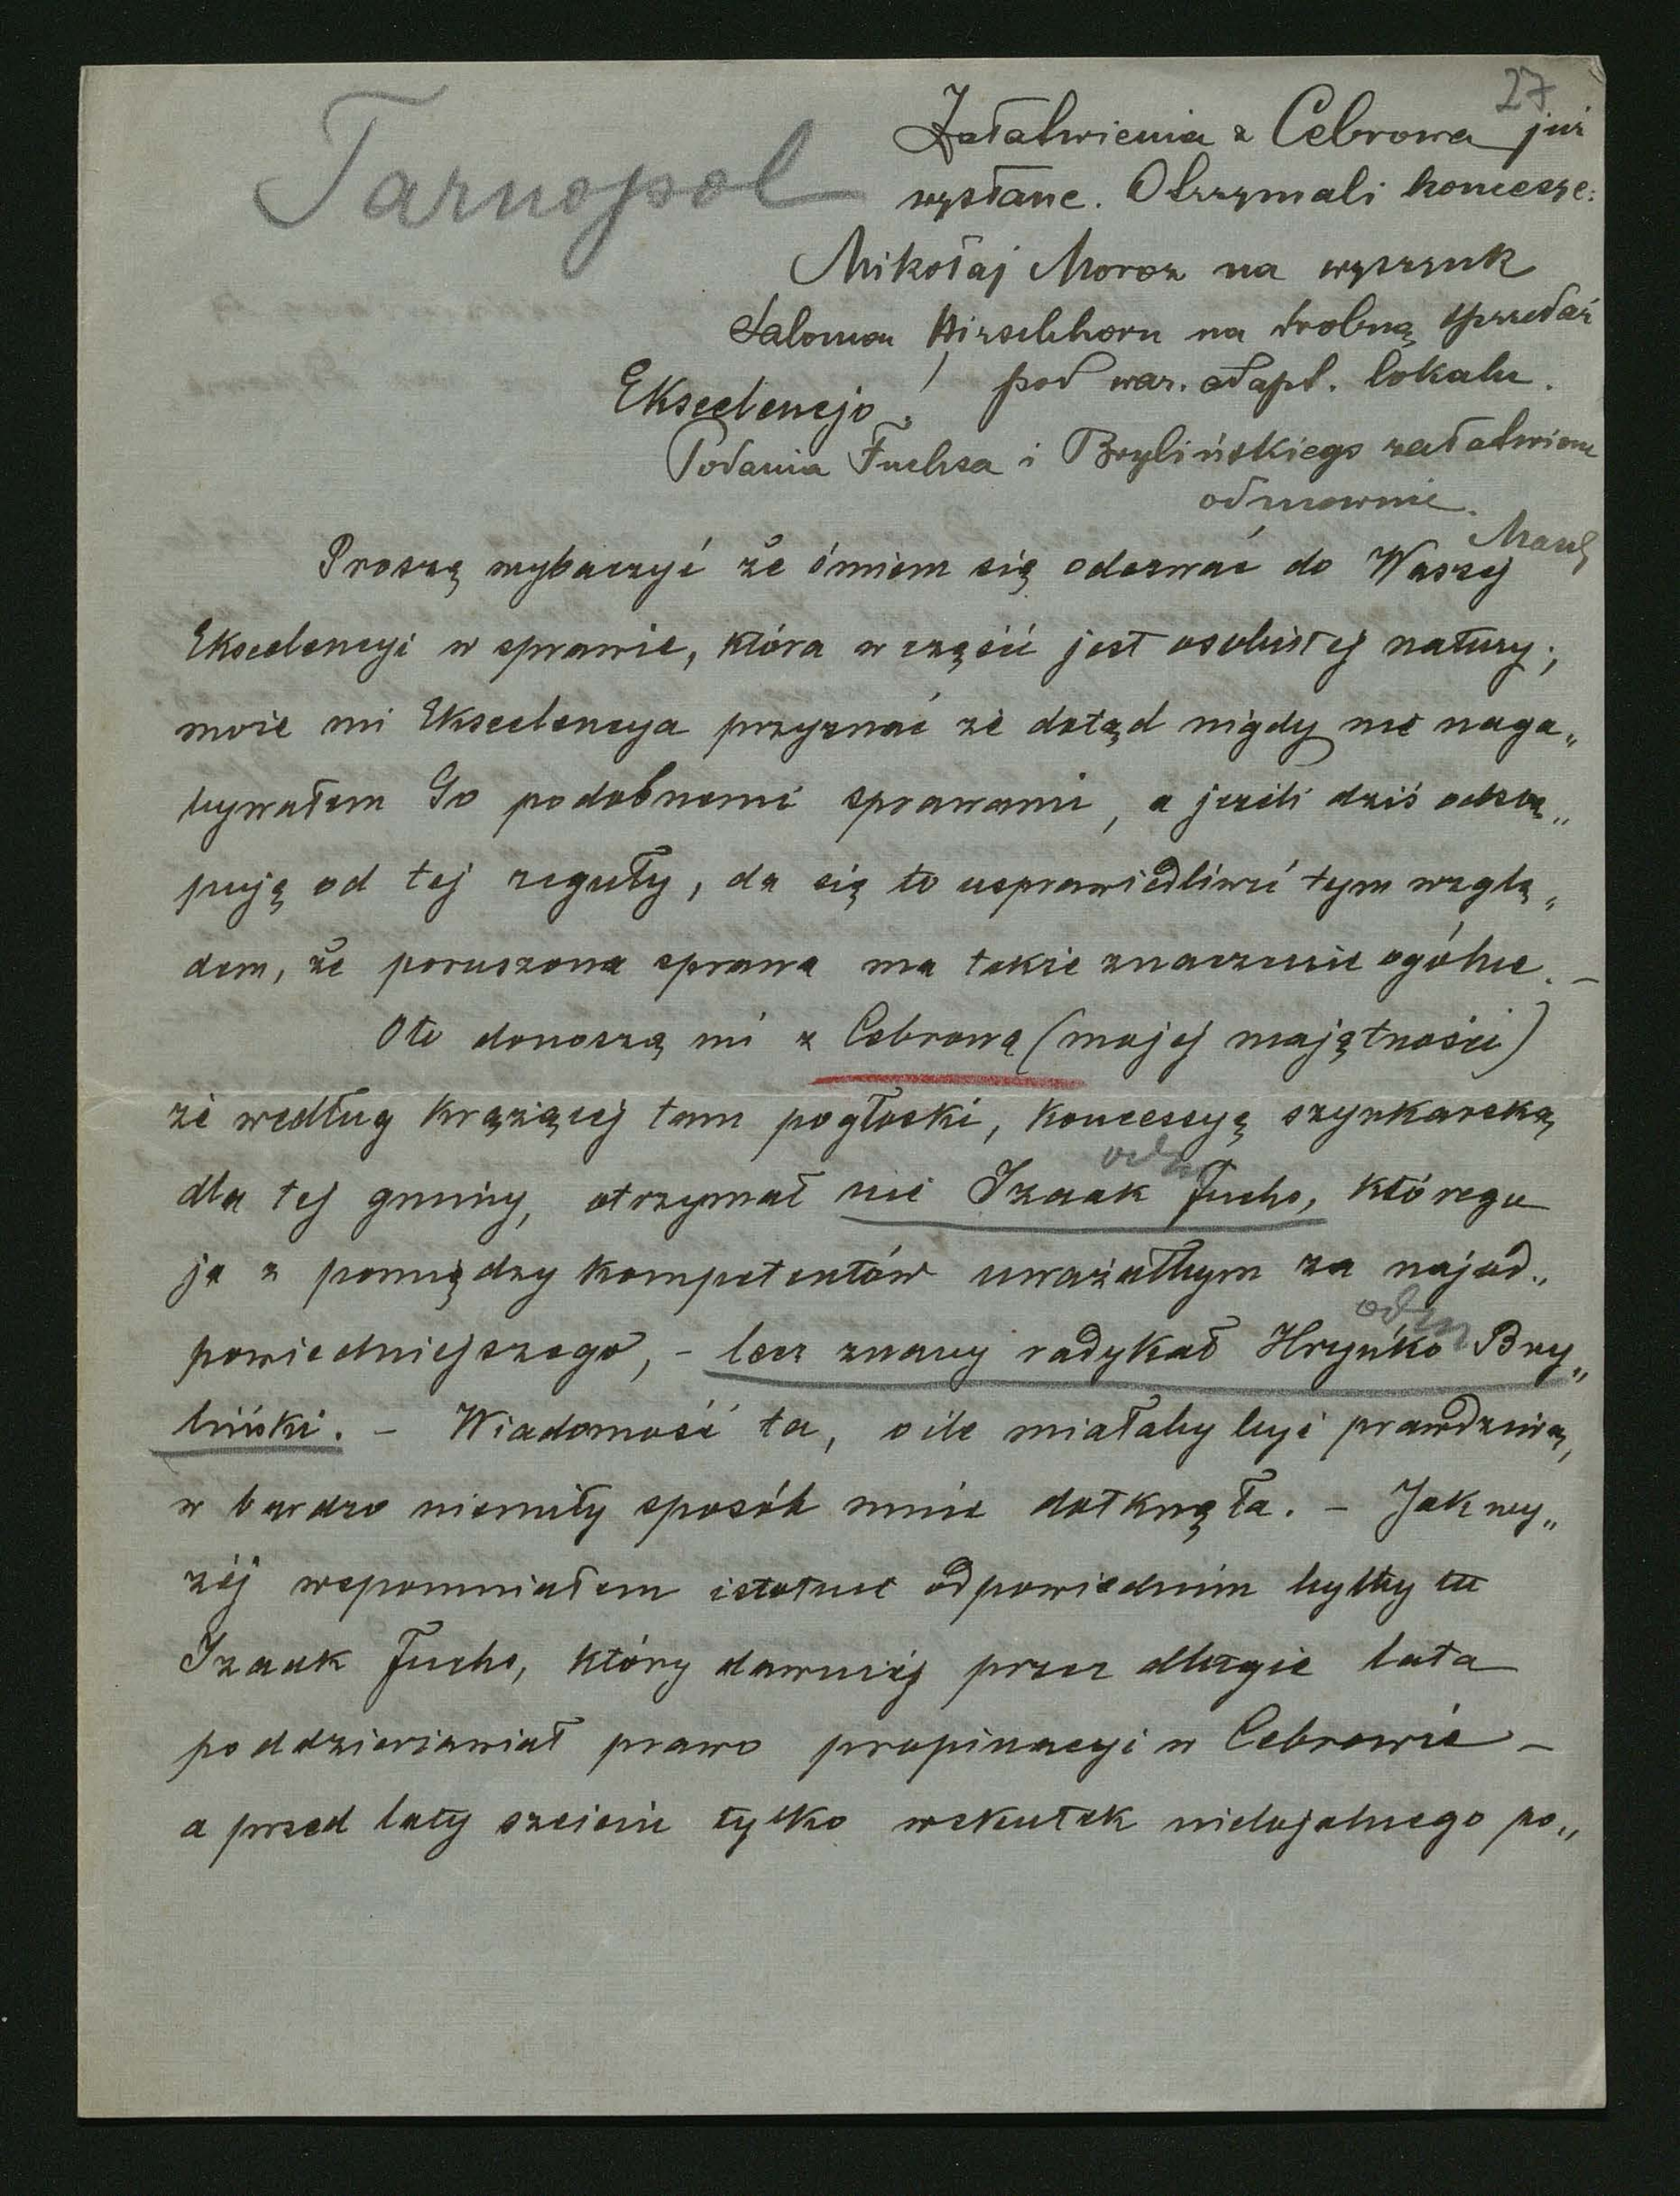 27
Tarnopol
Załatwienia z Cebrowa już
wysłane. Otrzymali koncesye:
Mikołaj Moroz na wyszynk
Salomon Hirschhorn na drobną sprzedaż
pod war. adapt. lokalu.
Ekscelencjo!
Podania Fuchsa i Brylińskiego załatwione
odmownie.
Proszę wybaczyć że śmiem się odezwać do Waszej
Ekscelencyi w sprawie, która w części jest osobistej natury;
może mi Ekscelencya przyznać że dotąd nigdy nie naga„
bywałem Go podobnemi sprawami, a jeżeli dziś odstę„
puję od tej reguły, da się to usprawiedliwić tym wzglę„
dem, że poruszona sprawa ma także znaczenie ogólne. –
Oto donoszą mi z Cebrowa (mojej majętności)
że według krążącej tam pogłoski, koncessyę szynkarską
odm
dla tej gminy, otrzymał nie Izaak Fuchs, którego
ja z pomiędzy kompetentów uważałbym za najod„
odm
powiedniejszego, – lecz znany radykał Hryńko Bry„
liński. – Wiadomość ta, o ile miałaby być prawdziwą,
w bardzo niemiły sposób mnie dotknęła. – Jak wy„
żéj wspomniałem istotnie odpowiednim byłby tu
Izaak Fuchs, który dawniéj przez długie lata
poddzierżawiał prawo propinacyi w Cebrowie –
a przed laty sześciu tylko wskutek nielojalnego po„